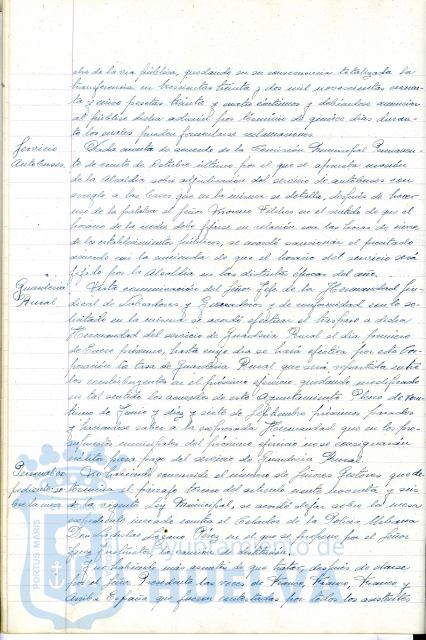 otro de la via pública, quedando en su consecuencia totalizada la
transferencia en trescientas treinta y dos mil novecientas
ta y cinco pesetas treinta y cuatro céntimos y debiéndose anunciar
al público dicha por término de quince días duran-
te los cuales puedan formularse reclamaciones.
Servicio
Autobuses.
Dada cuenta de acuerdo de la Comisión Municipal Permanen-
te de veinte de Octubre último por el que se aprueba moción
de la Alcaldía sobre adjudicación del servicio de autobuses con
arreglo a las bases que en la misma se detalla, después de hacer
uso de la palabra el Señor en el sentido de que el
horario de la noche debe fijarse en relación con las horas de cierre
de los establecimientos públicos, se acordó sancionar el precitado
acuerdo con la enmienda de que el horario del servicio será
fijado por la Alcaldía en las distintas épocas del año.
Guardería
Rural
Vista comunicación del Señor Jefe de la Hermandad Sin-
dical de Labradores y Ganaderos y de conformidad con lo so-
licitado en la misma se acordó efectuar el traspaso a dicha
Hermandad del servicio de Guardería Rural el día primero
de Enero próximo, hasta cuyo día se hará efectiva por esta Cor-
poración la tasa de Guardería Rural que será repartida entre
los contribuyentes en el próximo ejercicio quedando modificado
en tal sentido los acuerdos de este Ayuntamiento Pleno de vein-
tiuno de Junio y diez y siete de Septiembre próximos pasados
y haciendo saber a la expresada Hermandad que en los pre-
supuestos municipales del próximo ejercicio no se consignarán
créditos para pago del servicio de Guardería Rural.
Personal.
No habiendo concurrido el número de Señores Gestores que de-
termina el párrafo tercero del artículo ciento noventa y seis
de la vigente Ley Municipal, se acordó dejar sobre la mesa
expediente incoado contra el Celador de la Policía Urbana
Don Lázaro Pérez en el que se propone por el Señor
Juez Instructor, la sanción de destitución.
Y no habiendo más asuntos de que tratar, después de darse
por el Señor Presidente las voces de Franco, Franco, Franco y
Arriba España que fueron contestadas por todos los asistentes
PORTUS MARIS
Ayuntamiento de